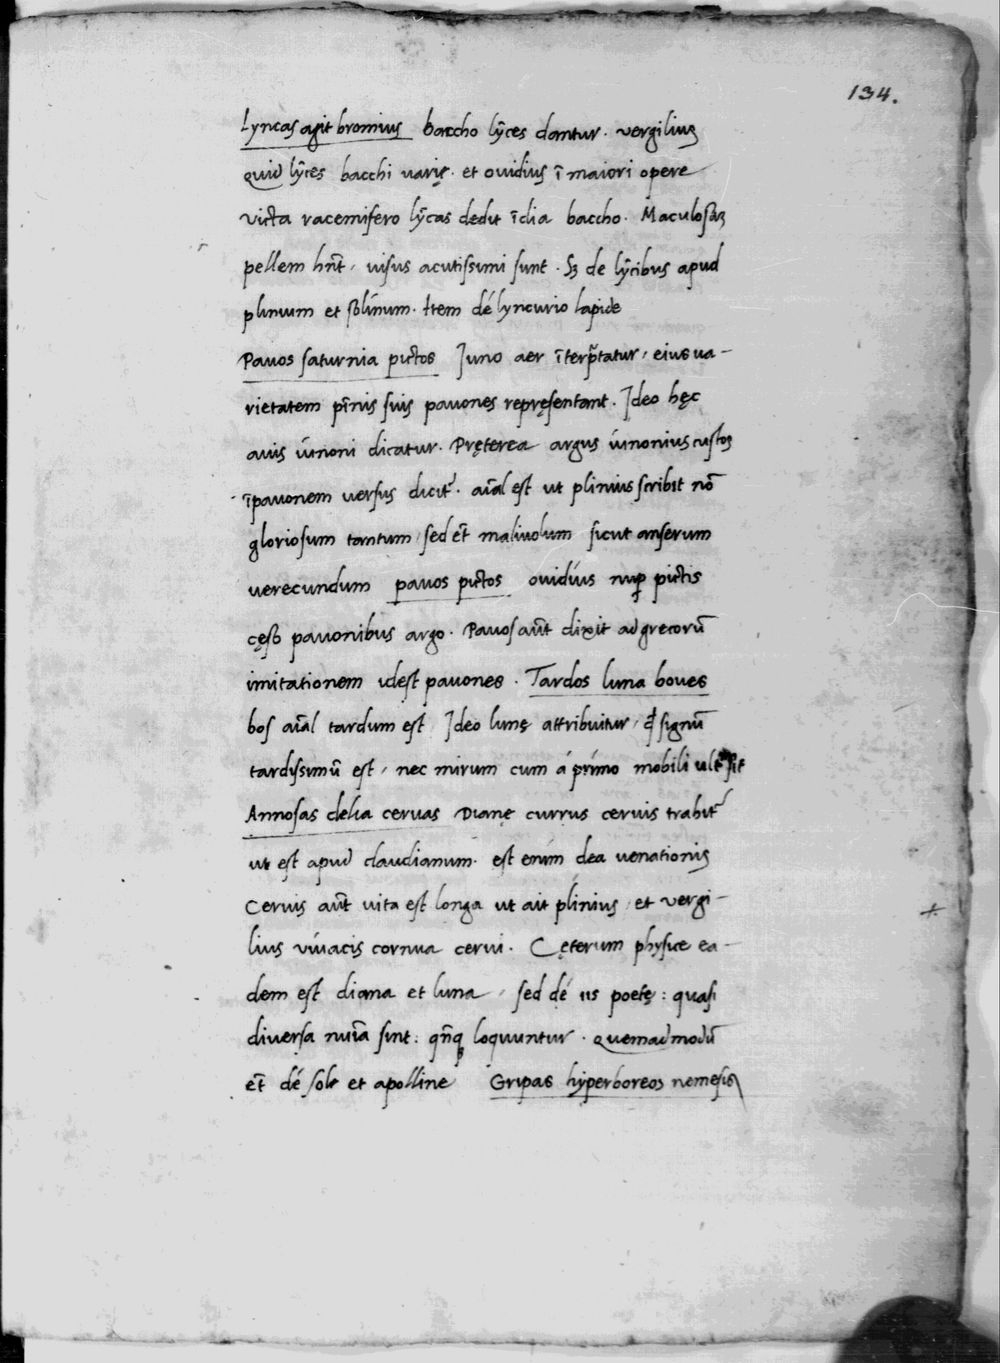 134.
Lyncas agit bromius baccho lȳces dantur. vergilius
quid lȳces bacchi varię. et ovidius ī maiori opere
victa racemifero lȳcas dedit īdia baccho. Maculosaꝫ
pellem hn̄t, visus acutissimi sunt. Sꝫ de lȳcibus apud
plinium et solinum. Item dé lyncurio lapide
Pavos saturnia pictos Juno aer īterp̄tatur, eius va-
rietatem pīnis suis pavones repręsentant. Ideo hęc
avis iunoni dicatur. Pręterea argus iunonius custos
ī pavonem versus dicit̄. aīal est ut plinius scribit nō
gloriosum tantum, sed et̄ malivolum sicut anserum
verecundum pavos pictos ovidius nuꝑ pictis
cęso pavonibus argo. Pavos aūt dixit ad grecorū
imitationem idest pavones. Tardos luna boves
bos aīal tardum est Ideo lunę attribuitur, qđ signū
tardissimū est, nec mirum cum á primo mobili ult̄ sit
Annosas delia cervas Dianę currus cervis trahit̄
ut est apud claudianum. est enim dea venationis
Cervis aūt vita est longa ut ait plinius, et vergi-
lius vivacis cornua cervi. Cęterum physice ea-
dem est diana et luna, sed dé iis poetę: quasi
diversa nuīa sint: qn̄qꝫ loquuntur. quemadmodū
et̄ dé sole et apolline Gripas hyperboreos nemesis